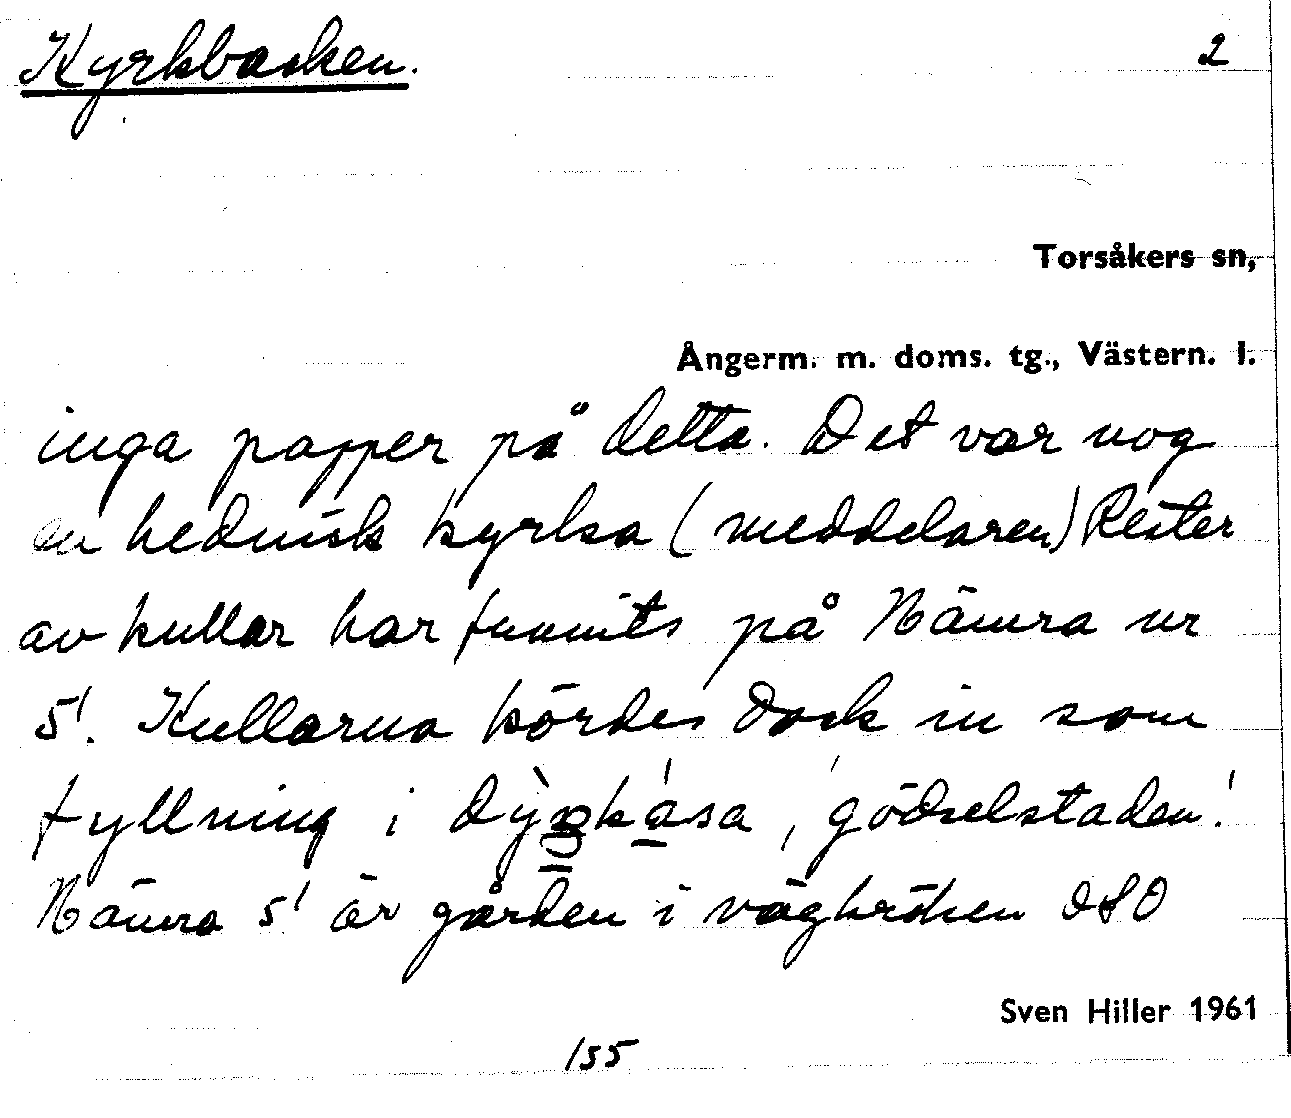 Kyrkbacken. 2
Torsåkers sn,
Ångerm. m. doms. tg., Västern. l.
inga papper på detta. Det var nog
en hednisk kyrka (meddelaren) Rester
av kullar har funnits på Nämra nr
5. Kullarna kördes dock in som
fyllning i gödselstaden!
Nämra 5 är gården i vägkröken OSO
Sven Hiller 1961
155